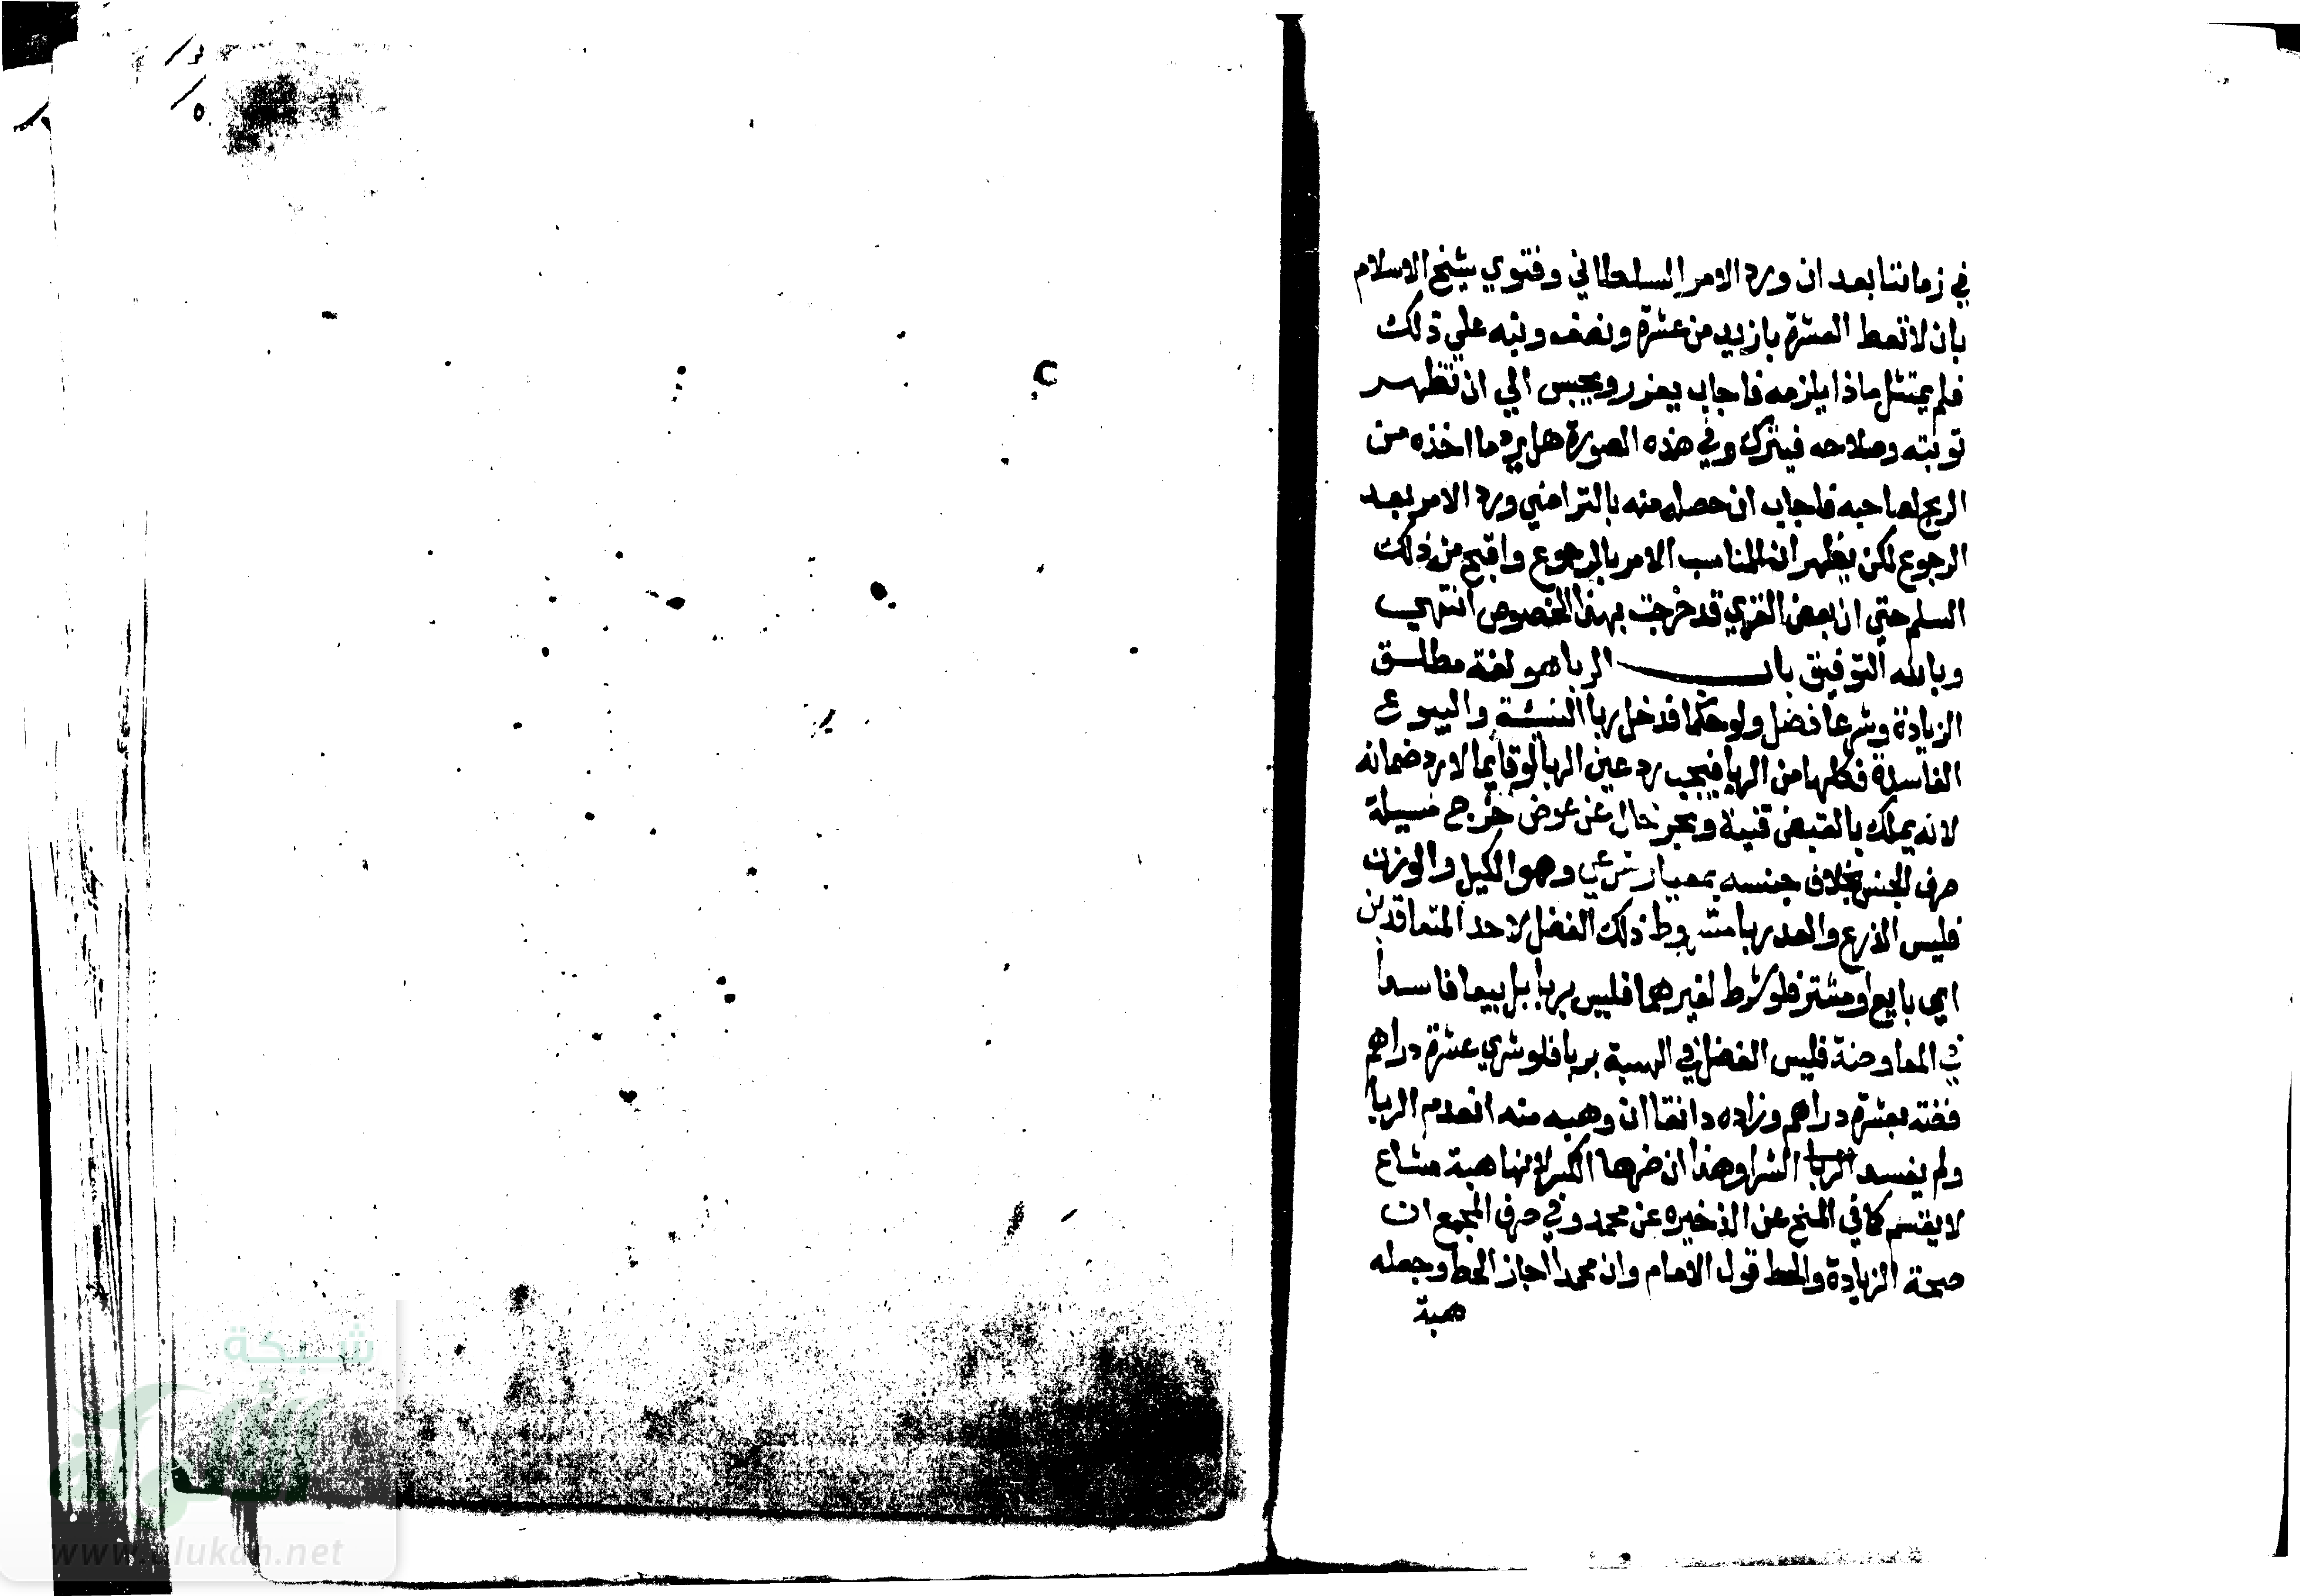 في زماننا بعد ان ورد الامر السلطاني وفتوي شيخ الاسلام
بان لا تعط العشرة بازيد من عشرة ونصف ونبه علي ذلك
فلم يمتثل ماذا يلزمه فاجاب يعزر ويحبس الي ان تظهر
توبته وصلاحه فيترك وفي هذه الصورة هل يرد ما اخذه من
الربح لصاحبه فاجاب ان حصله منه بالتراضي ورد الامر بعد
الرجوع لكن يظهر ان المناسب الامر بالرجوع واقبح من ذلك
السلم حتي ان بعض القري قد خرجت بهذا الخصوص انتهي
وبالله التوفيق باب الربا هو لغة مطلق
الزيادة وشرعا فضل ولو حكما فدخل ربا النسيئة والبيوع
الفاسدة فكلها من الربا فيجب رد عين الربا لو قايما لا رد ضمانه
لانه يملك بالقبض قنية و خال عن عوض خرج مسيلة
صرف الجنس بخلاف جنسه بمعيار شرعي وهو الكيل والوزن
فليس الذرع والعد ربا مشروط ذلك الفضل لاحد المتعاقدين
اي بايع او مشتر فلو شرط لغيرهما فليس بربا بل بيعا فاسدا
في المعاوضة فليس الفضل في الهبة بربا فلو شري عشرة دراهم
فضة بعشرة دراهم وزاده دانقا ان وهبه منه انعدم الربا
ولم يفسد الربا الشرا وهذا ان ضرها الكسر لانها هبة مشاع
لا يقسم كما في المنح عن الذخيره عن محمد وفي صرف المجمع ان
صحة الزيادة والحط قول الامام وان محمدا اجاز الحط وجعله
هبة
شبكة
الألوكة
www.alukah.net